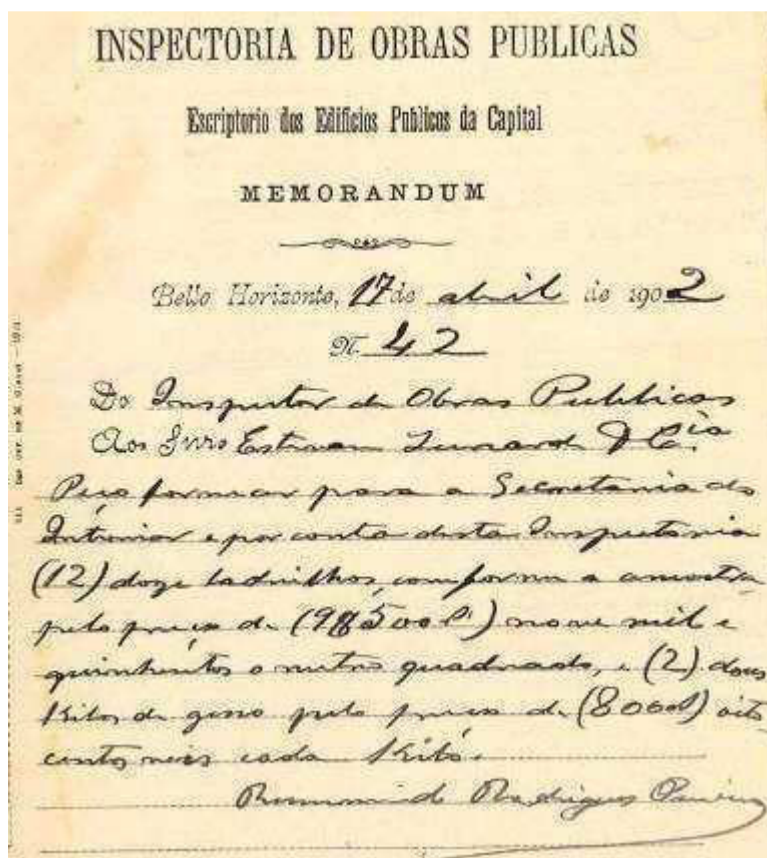 INSPECTORIA DE OBRAS PUBLICAS
Escriptorio dos Edificios Publicos da Capital
MEMORANDUM
Bello Horizonte, 17 de abril de 1902
N. 42
Do Inspector de Obras Publicas
Aos Snrs Estevam Lunardi & Cia
Peço fornecer para a Secretaria do
Interior e por conta desta Inspectoria
(12) doze ladrilhos, conforme a amostra
pelo preço de (9$500) nove mil e
quinhentos o metro quadrado, e (2) dous
kilos de gesso pelo preço de (800) oito
centos reis cada kilo.
Rodrigues